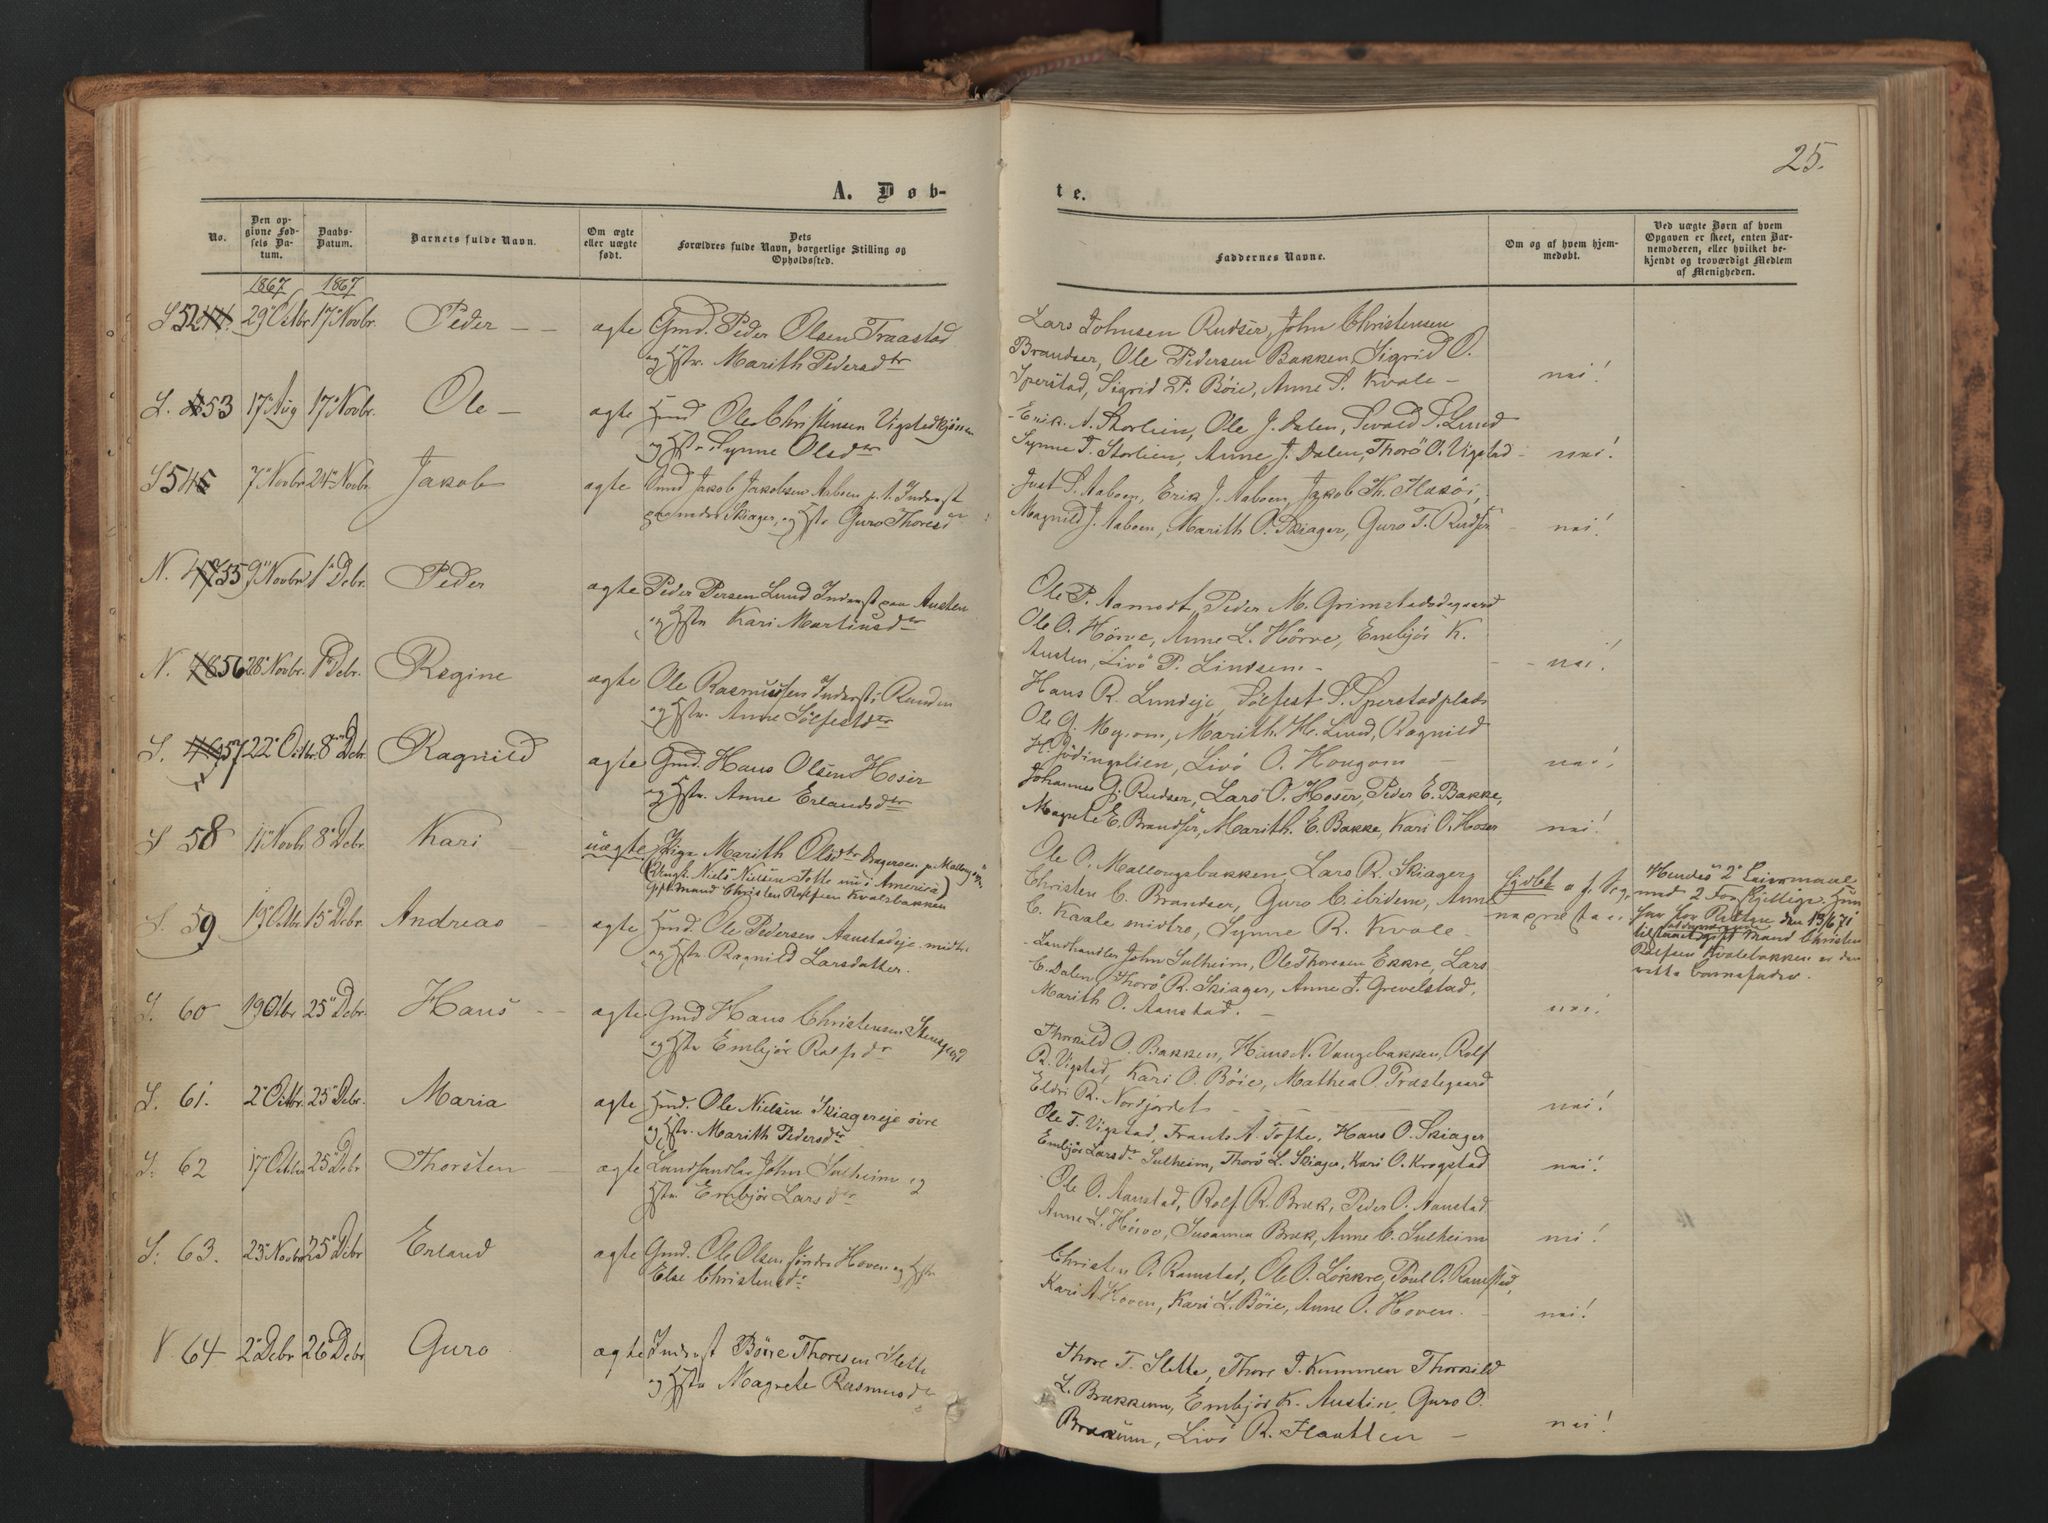 25.
A. Døb-
te.
No.
Den op-
givne Fød-
sels Da-
tum.
Daabs-
Datum.
Barnets fulde Navn.
Om ægte
eller uægte
født.
Dets
Forældres fulde Navn, borgerlige Stilling og
Opholdssted.
Faddernes Navne.
Om og af hvem hjem-
medøbt.
Ved uægte Børn af hvem
Opgaven er skeet, enten Bar-
nemoderen, eller hvilket be-
kjendt og troværdigt Medlem
af Menigheden.
1867 1867
S 52 29 Octbr 17 Novbr. Peder - - ægte Gmd. Peder Olsen Fraastad
og Hstr. Marith Pedersdtr
Lars Johnsen Rudser, John Christensen
Brandser, Ole Pedersen Bakken, Sigrid O.
Sperstad, Sigrid P. Böie, Anne S. Kvale - nei!
S. 53 17 Aug 17 Novbr. Ole - ægte Hmd Ole Christensen
og Hstr Synne Olsdtr
Erik A. Storlien, Ole J. Dalen, Sevald S. Lund
Synne T. Storlien, Anne J. Dalen, Thorö O. Vigstad - nei!
S 54 7 Novbr 24 Novbr. Jakob ægte Smd Jakob Jakobsen Aaboen p. t. Inderst
paa Skiager, og Hstr Guro Thoresdtr
Just S. Aaboen, Erik J. Aaboen, Jakob Th.
Magnild J. Aaboen, Marith O. Skiager, Guro T. Rudser - nei!
N. 55 9 Novbr 1 Debr. Peder ægte Peder Persen Lund Inderst paa Austen
og Hstr Kari Martinsdtr
Ole P. Aamodt, Peder M. Grimstadsdegaard
Ole O. Hörve, Anne L. Hörve, Embjör K.
Austen, Livö P. Lindsem - - - nei!
N. 56 28 Novbr. 1 Debr. Regine ægte Ole Rasmussen Inderst i Randen
og Hstr. Anne Sölfestdtr
Hans R. Lundeje, Sölfest S. Sperstadplads
Ole G. Mysom, Marith H. Lund, Ragnild
H. Livö O. Hougom - nei!
S. 57 22 Octbr. 8 Debr. Ragnild ægte Gmd. Hans Olsen Hoser
og Hstr. Anne Erlandsdtr
Johannes G. Rudser, Lars O. Hoser, Peder E. Bakke,
Magrete E. Brandser, Marith E. Bakke, Kari O. Hoser nei!
S 58 11 Novbr. 8 Debr. Kari - uægte Pige Marith Olsdtr
(Ungk. Niels Nielsen Tofte nu i America)
gift Mand Christen Rolfsen Kvalebakken
Ole O. Mallongsbakken, Lars R. Skiager,
Christen C. Brandser, Guro Anne
C. Kvale midtre, Synne R. Kvale -
Hendes 2
med 2 Forskjellige. Hun
har for Retten den 13/6 71
gift Mand Christen
Rolfsen Kvalebakken er den
rette barnefader.
S. 59 19 Octbr. 15 Debr. Andreas ægte Hmd. Ole Pedersen Aanstadeje midtr
og Hstr Ragnild Larsdatter.
Landhandler John Sulheim, Ole Thoresen Ekkre, Lars
E. Dalen, Thorö R. Skiager, Anne J. Grevelstad,
Marith O. Aanstad. - nei!
S. 60 19 Octbr 25 Debr. Hans - - ægte Gmd Hans Christensen Stensgaard
og Hstr Embjör Rolfsdtr
Thorkild O. Bakken, Hans N. Vangebakken, Rolf
R. Vigstad, Kari O. Böie, Mathea O. Præstegaard
Eldri R. Nordjordet - - - nei!
S. 61. 2 Octbr. 25 Debr. Maria ægte Hmd. Ole Nielsen Skiagereje övre
og Hstr. Marith Pedersdtr
Ole T. Vigstad, Frants A. Tofte, Hans O. Skiager
Embjör Larsdtr Sulheim, Thorö L. Skiager, Kari O. Krogstad nei!
S. 62 17 Octbr 25 Debr Thorsten - ægte Landhandler John Sulheim og
Hstr. Embjör Larsdtr
Ole O. Aanstad, Rolf R. Bræk, Peder O. Aanstad
Anne L. Susanna Bræk, Anne C. Sulheim nei!
S. 63. 23 Novbr 25 Debr Erland ægte Gmd. Ole Olsen Söndre Hoven og Hstr
Else Christensdtr
Christen O. Ramstad, Ole O. Lökkre, Poul O. Ramstad,
Kari A. Hoven, Kari L. Böie, Anne O. Hoven. - nei!
N. 64 2 Debr 26 Debr Guro ægte Inderst Börre Thoresen Slette
og Hstr Magrete Rasmusdtr
Thore T. Slette, Thore J. Kummen Thorkild
L. Brækkum, Embjör K. Austin, Guro O.
Livö R. - nei!